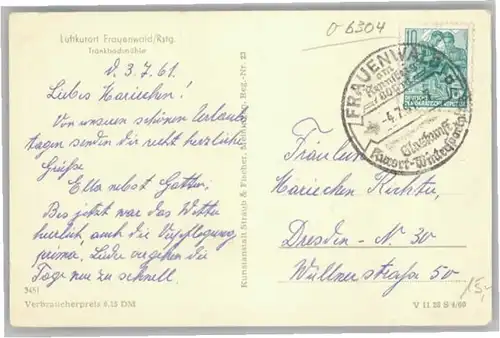 O-6304
Luftkurort Frauenwald/Rstg.
Tränkbachmühle
d. 3.7.61.
Liebes Mariechen!
Von unseren schönen Urlaubs
tagen senden dir recht herzliche
Grüße
Ella nebst Gatten.
Bis jetzt war das Wetter
herrlich, auch die Verpflegung
prima. Leider vergehen die
Tage nur zu schnell.
3451
Verbraucherpreis 0,15 DM
Kunstanstalt Straub & Fischer, Meiningen, Reg.-Nr. 23
10
DEUTSCHE
DEMOKRATISCHE REPUBLIK
FRAUENWALD
am
Rennsteig
-4.7.
Kurort-Wintersportplatz
Fräulein
Mariechen Richter
Dresden - N. 30
Wüllnerstraße 50
V 11 28 S 4/60
15,-